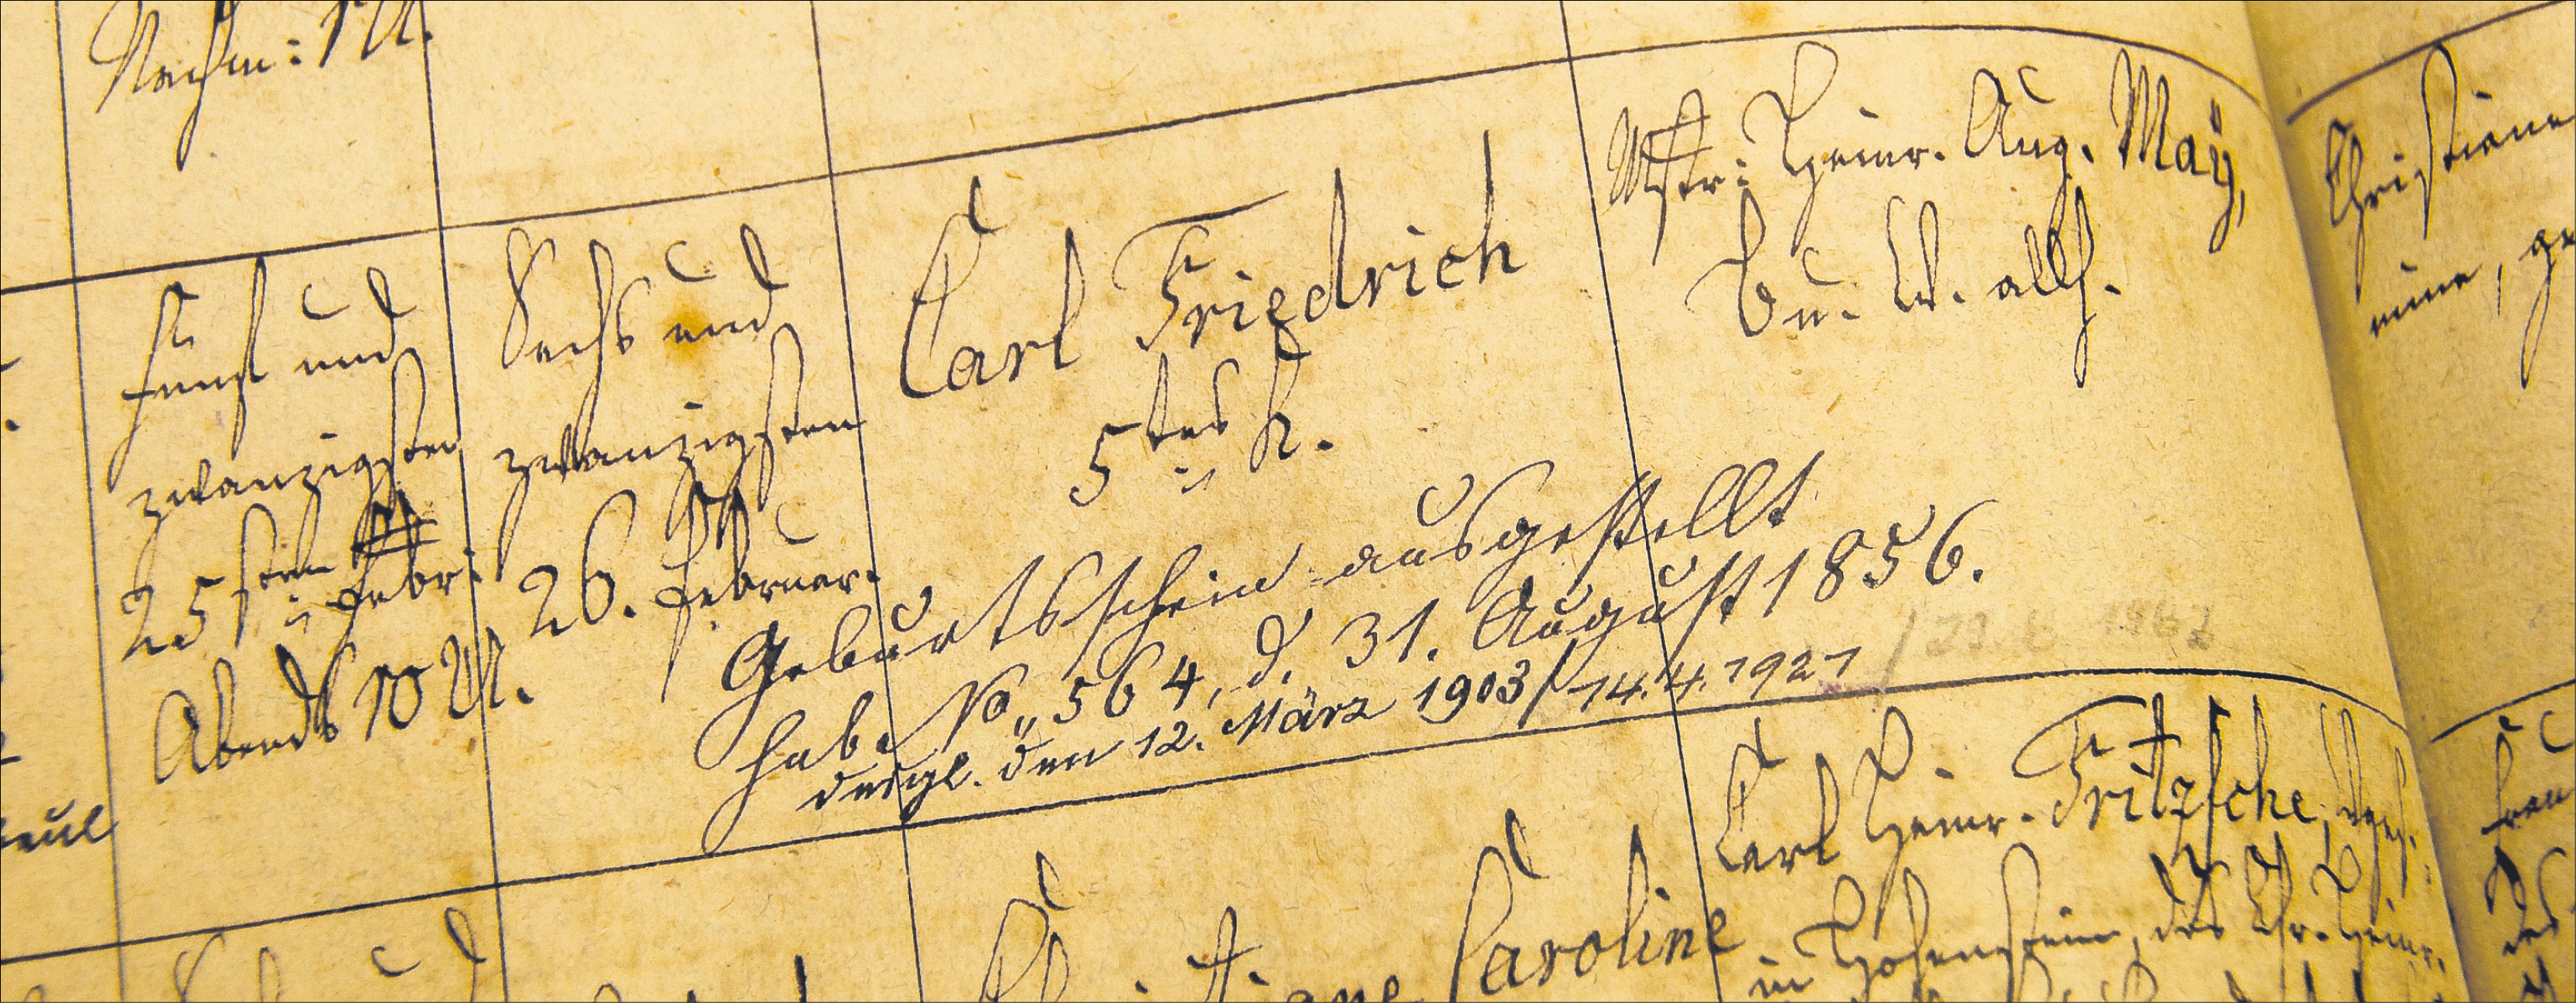 Nachm: 1 U.
Fünf und
zwanzigsten
25sten Febr:
Abends 10 U.
Sechs und
zwanzigsten
26. Februar.
Carl Friedrich
5tes K.
Mstr: Heinr. Aug. Maÿ,
B. u. W. allh.
Christiane
mine, ge
Geburtsschein ausgestellt
hab. No 564, d. 31. August 1856.
desgl. den 12. März 1903 / 14.4.1921 /
Caroline
Carl Heinr. Fritzsche,
in Hohenstein, des Chr. Heinr.
des